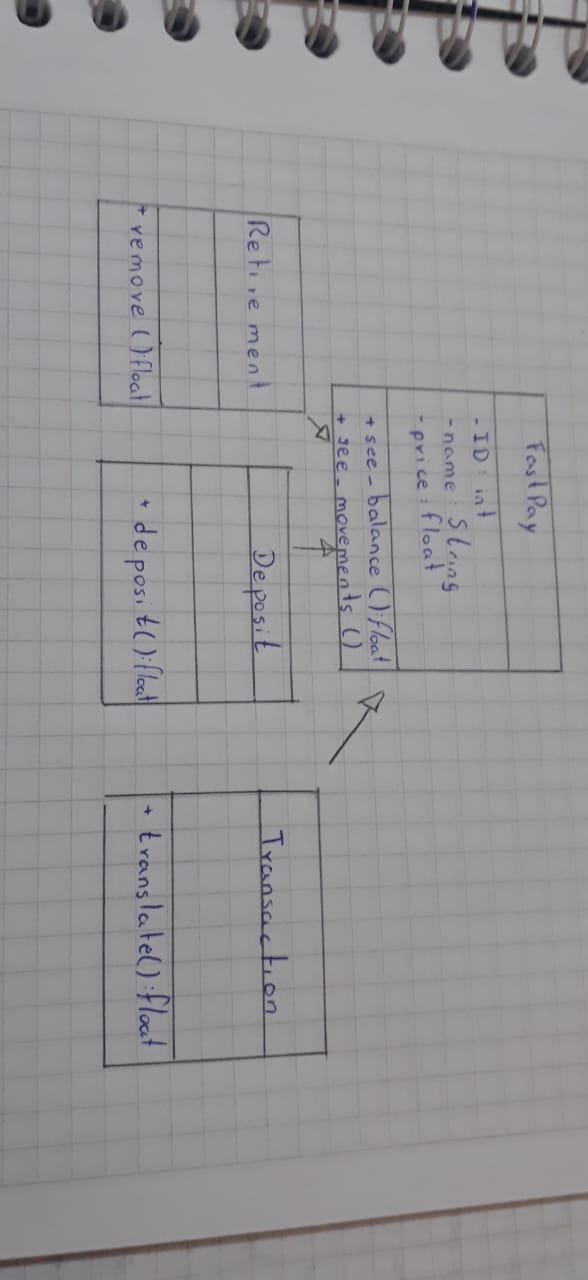 FastPay
- ID: int
- name: String
- price: float
+ see_balance():float
+ see_movements()
Retirement
+ remove():float
Deposit
+ deposit():float
Transaction
+ translate():float